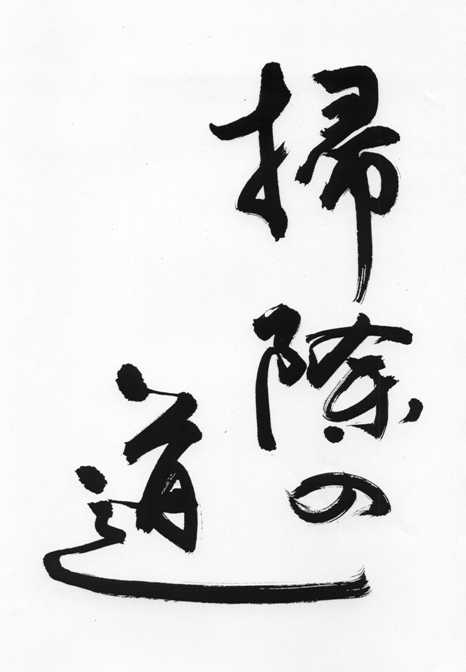 掃除の
道